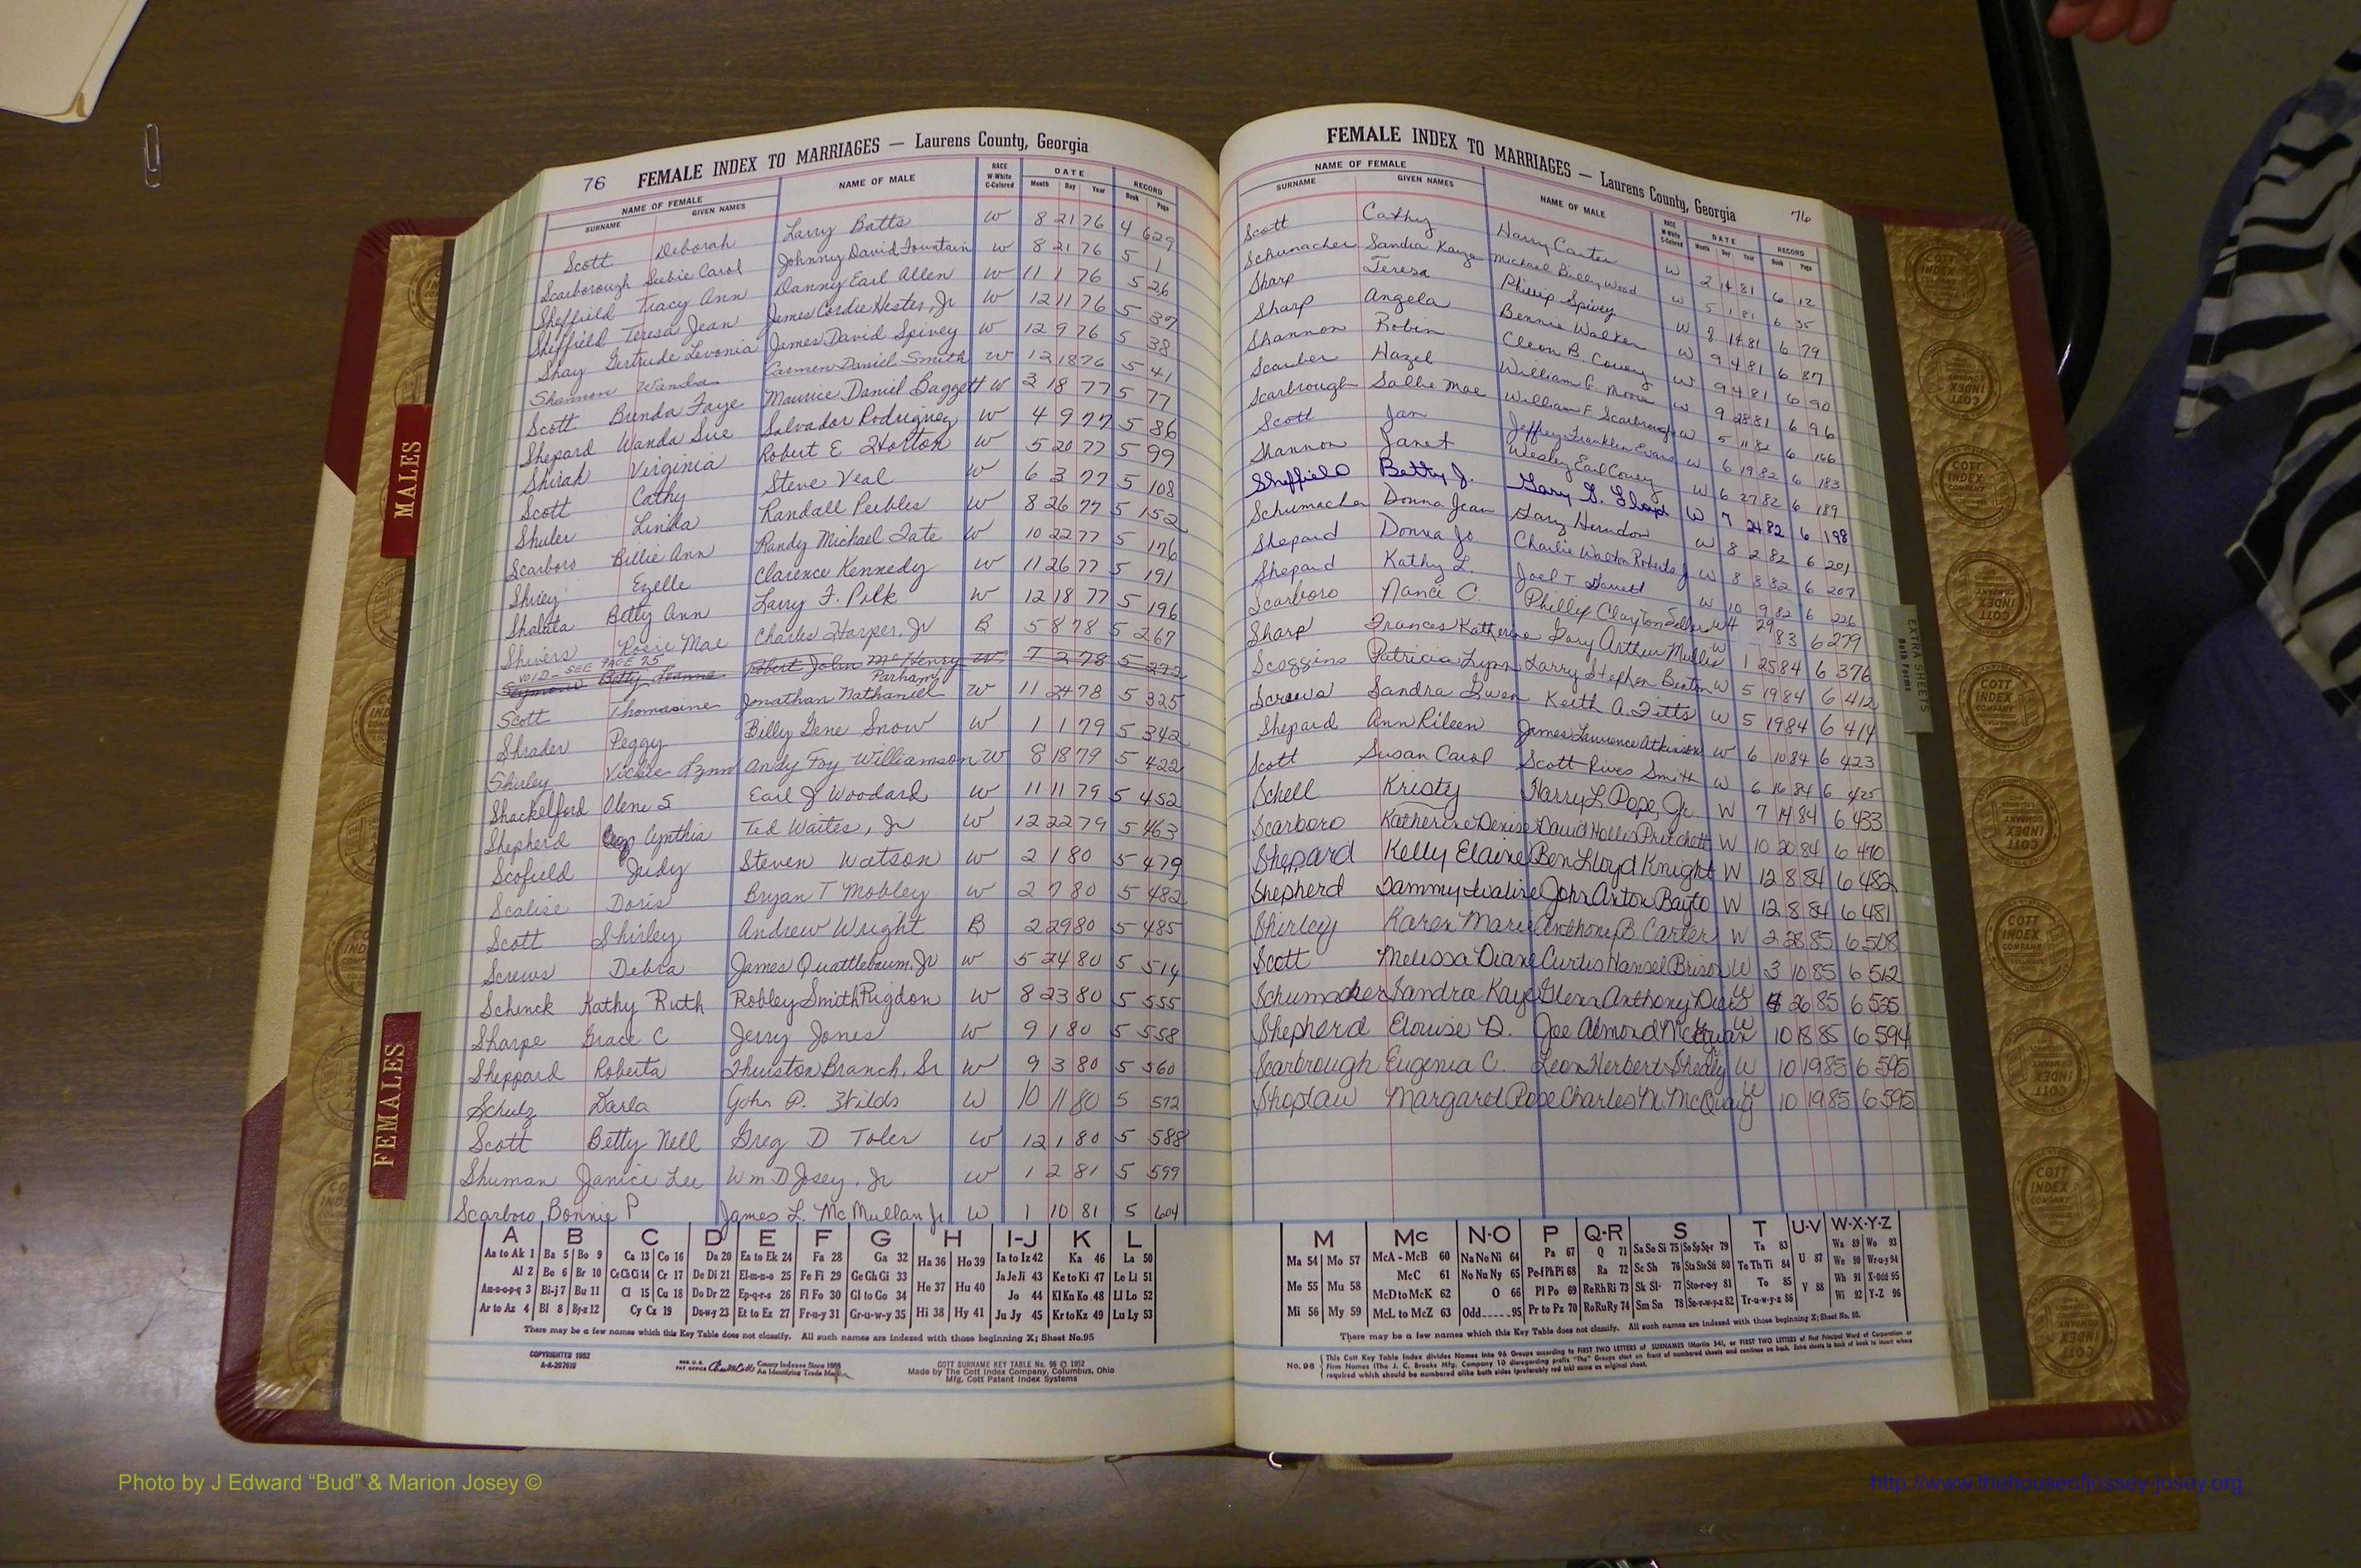 76 FEMALE INDEX TO MARRIAGES — Laurens County, Georgia
NAME OF FEMALE NAME OF MALE RACE W-White C-Colored DATE RECORD
SURNAME GIVEN NAMES Month Day Year Book Page
Scott Deborah Larry Batts W 8 21 76 4 629
Scarborough Subie Carol Johnny David Fountain W 8 21 76 5 1
Sheffield Tracy Ann Danny Earl Allen W 11 1 76 5 26
Sheffield Teresa Jean James Cordie Hester, Jr W 12 11 76 5 37
Shay Gertrude Levonia James David Spivey W 12 9 76 5 38
Shannon Wanda Carmen Daniel Smith W 12 18 76 5 41
Scott Brenda Faye Maurice Daniel Baggett W 3 18 77 5 77
Shepard Wanda Sue Salvador Rodriguez W 4 9 77 5 86
Shirah Virginia Robert E Horton W 5 20 77 5 99
Scott Cathy Steve Veal W 6 3 77 5 108
Shuler Linda Randall Peebles W 8 26 77 5 152
Scarboro Billie Ann Randy Michael Tate W 10 22 77 5 176
Shivey Ezelle Clarence Kennedy W 11 26 77 5 191
Shalata Betty Ann Larry F. Polk W 12 18 77 5 196
Shivers Rosie Mae Charles Harper, Jr B 5 8 78 5 267
VOID - SEE PAGE 75
Seymour Betty Jeanne Robert John McHenry W 7 2 78 5 292
Scott Thomasine Jonathan Nathaniel Parham W 11 24 78 5 325
Shrader Peggy Billy Gene Snow W 1 1 79 5 342
Shirley Vickie Lynn Andy Foy Williamson W 8 18 79 5 422
Shackelford Olene S Earl J Woodard W 11 11 79 5 452
Shepherd Cynthia Ted Waites, Jr W 12 22 79 5 463
Scofield Judy Steven Watson W 2 1 80 5 479
Scalise Doris Bryan T Mobley W 2 7 80 5 482
Scott Shirley Andrew Wright B 2 29 80 5 485
Screws Debra James Quattlebaum, Jr W 5 24 80 5 514
Schenck Kathy Ruth Robley Smith Rigdon W 8 23 80 5 555
Sharpe Grace C Jerry Jones W 9 1 80 5 558
Sheppard Roberta Thurston Branch, Sr W 9 3 80 5 560
Schulz Darla John P. Wilds W 10 11 80 5 572
Scott Betty Nell Greg D Toler W 12 1 80 5 588
Shuman Janice Lee Wm D Josey, Jr W 1 2 81 5 599
Scarboro Bonnie P James L. McMullan Jr W 1 10 81 5 604
A B C D E F G H I-J K L
Aa to Ak 1 Ba 5 Bo 9 Ca 13 Co 16 Da 20 Ea to Ek 24 Fa 28 Ga 32 Ha 36 Ho 39 Ia to Iz 42 Ka 46 La 50
Al 2 Be 6 Br 10 Ce Ch Ci 14 Cr 17 De Di 21 El-m-n-o 25 Fe Fi 29 Ge Gh Gi 33 He 37 Hu 40 Ja Je Ji 43 Ke to Ki 47 Le Li 51
Am-n-o-p-q 3 Bi-j 7 Bu 11 Cl 15 Cu 18 Do Dr 22 Ep-q-r-s 26 Fl Fo 30 Gl to Go 34 Jo 44 Kl Kn Ko 48 Ll Lo 52
Ar to Az 4 Bl 8 By-z 12 Cy Cz 19 Du-w-y 23 Et to Ez 27 Fr-u-y 31 Gr-u-w-y 35 Hi 38 Hy 41 Ju Jy 45 Kr to Kz 49 Lu Ly 53
There may be a few names which this Key Table does not classify. All such names are indexed with those beginning X; Sheet No.95
COPYRIGHTED 1952
A-A-207610
County Indexes Since 1888
An Identifying Trade Mark
COTT SURNAME KEY TABLE No. 96 © 1952
Made by The Cott Index Company, Columbus, Ohio
Mfg. Cott Patent Index Systems
FEMALE INDEX TO MARRIAGES — Laurens County, Georgia 76
NAME OF FEMALE NAME OF MALE RACE W-White C-Colored DATE RECORD
SURNAME GIVEN NAMES Month Day Year Book Page
Scott Cathy Harry Carter W 2 14 81 6 12
Schumacher Sandra Kaye Michael Billy Wood W 5 1 81 6 35
Sharp Teresa Phillip Spivey W 8 14 81 6 79
Sharp Angela Bennie Walker W 9 4 81 6 87
Shannon Robin Cleon B. Couey W 9 4 81 6 90
Scauber Hazel William G. Moore W 9 28 81 6 96
Scarbrough Sallie Mae William F Scarbrough W 5 11 82 6 166
Scott Jan Jeffrey Franklin Evans W 6 19 82 6 183
Shannon Janet Wesley Earl Couey W 6 27 82 6 189
Sheffield Betty J. Gary G. Floyd W 7 24 82 6 198
Schumacher Donna Jean Gary Herndon W 8 2 82 6 201
Shepard Donna Jo Charlie Walton Roberts Jr W 8 8 82 6 207
Shepard Kathy L. Joel T. Garrett W 10 9 82 6 226
Scarboro Nanci C. Phillip Clayton Sellers W 4 29 83 6 279
Sharp Frances Katherine Gary Arthur Mullis W 1 25 84 6 376
Scoggins Patricia Lynn Larry Stephen Benton W 5 19 84 6 412
Screws Sandra Gwen Keith A. Fitts W 5 19 84 6 414
Shepard Ann Rileen James Lawrence Atkinson W 6 10 84 6 423
Scott Susan Carol Scott Rives Smith W 6 16 84 6 425
Schell Kristy Harry L. Pope, Jr. W 7 14 84 6 433
Scarboro Katherine Denise David Hollis Pritchett W 10 20 84 6 470
Shepard Kelly Elaine Ben Lloyd Knight W 12 8 84 6 482
Shepherd Tammy Evaline John Anton Bayto W 12 8 84 6 481
Shirley Karen Marie Anthony B. Carter W 2 28 85 6 508
Scott Melissa Diane Curtis Hansel Brison W 3 10 85 6 512
Schumacher Sandra Kaye Glenn Anthony W 4 26 85 6 525
Shepherd Elouise D. Joe Almond W 10 18 85 6 594
Scarbrough Eugenia C. Leon Herbert Shealy W 10 19 85 6 595
Shoptaw Margaret Pope Charles N. McQuaig W 10 19 85 6 595
M Mc N-O P Q-R S T U-V W-X-Y-Z
Ma 54 Mo 57 McA - McB 60 Na Ne Ni 64 Pa 67 Q 71 Sa Se Si 75 So Sp Sq-r 79 Ta 83 U 87 Wa 89 Wo 93
Me 55 Mu 58 McC 61 No Nu Ny 65 Pe-f Ph Pi 68 Ra 72 Sc Sh 76 Sta Ste Sti 80 Te Th Ti 84 We 90 Wr-u-y 94
McD to McK 62 O 66 Pl Po 69 Re Rh Ri 73 Sk Sl- 77 Sto-r-u-y 81 To 85 V 88 Wh 91 X-Odd 95
Mi 56 My 59 McL to McZ 63 Odd 95 Pr to Pz 70 Ro Ru Ry 74 Sm Sn 78 Su-v-w-y-z 82 Tr-u-w-y-z 86 Wi 92 Y-Z 96
There may be a few names which this Key Table does not classify. All such names are indexed with those beginning X; Sheet No. 95.
No. 96
This Cott Key Table Index divides Names into 96 Groups according to FIRST TWO LETTERS of SURNAMES (Martin 54), or FIRST TWO LETTERS of First Principal Word of Corporation or
Firm Names (The J. C. Brooks Mfg. Company 10 disregarding prefix "The" Groups start on front of numbered sheets and continue on back. Extra sheets in back of book to insert where
required which should be numbered alike both sides (preferably red ink) same as original sheet.
MALES
FEMALES
EXTRA SHEETS
Both Forms
COTT INDEX COMPANY
Photo by J Edward “Bud” & Marion Josey ©
http://www.thehouseofjossey-josey.org